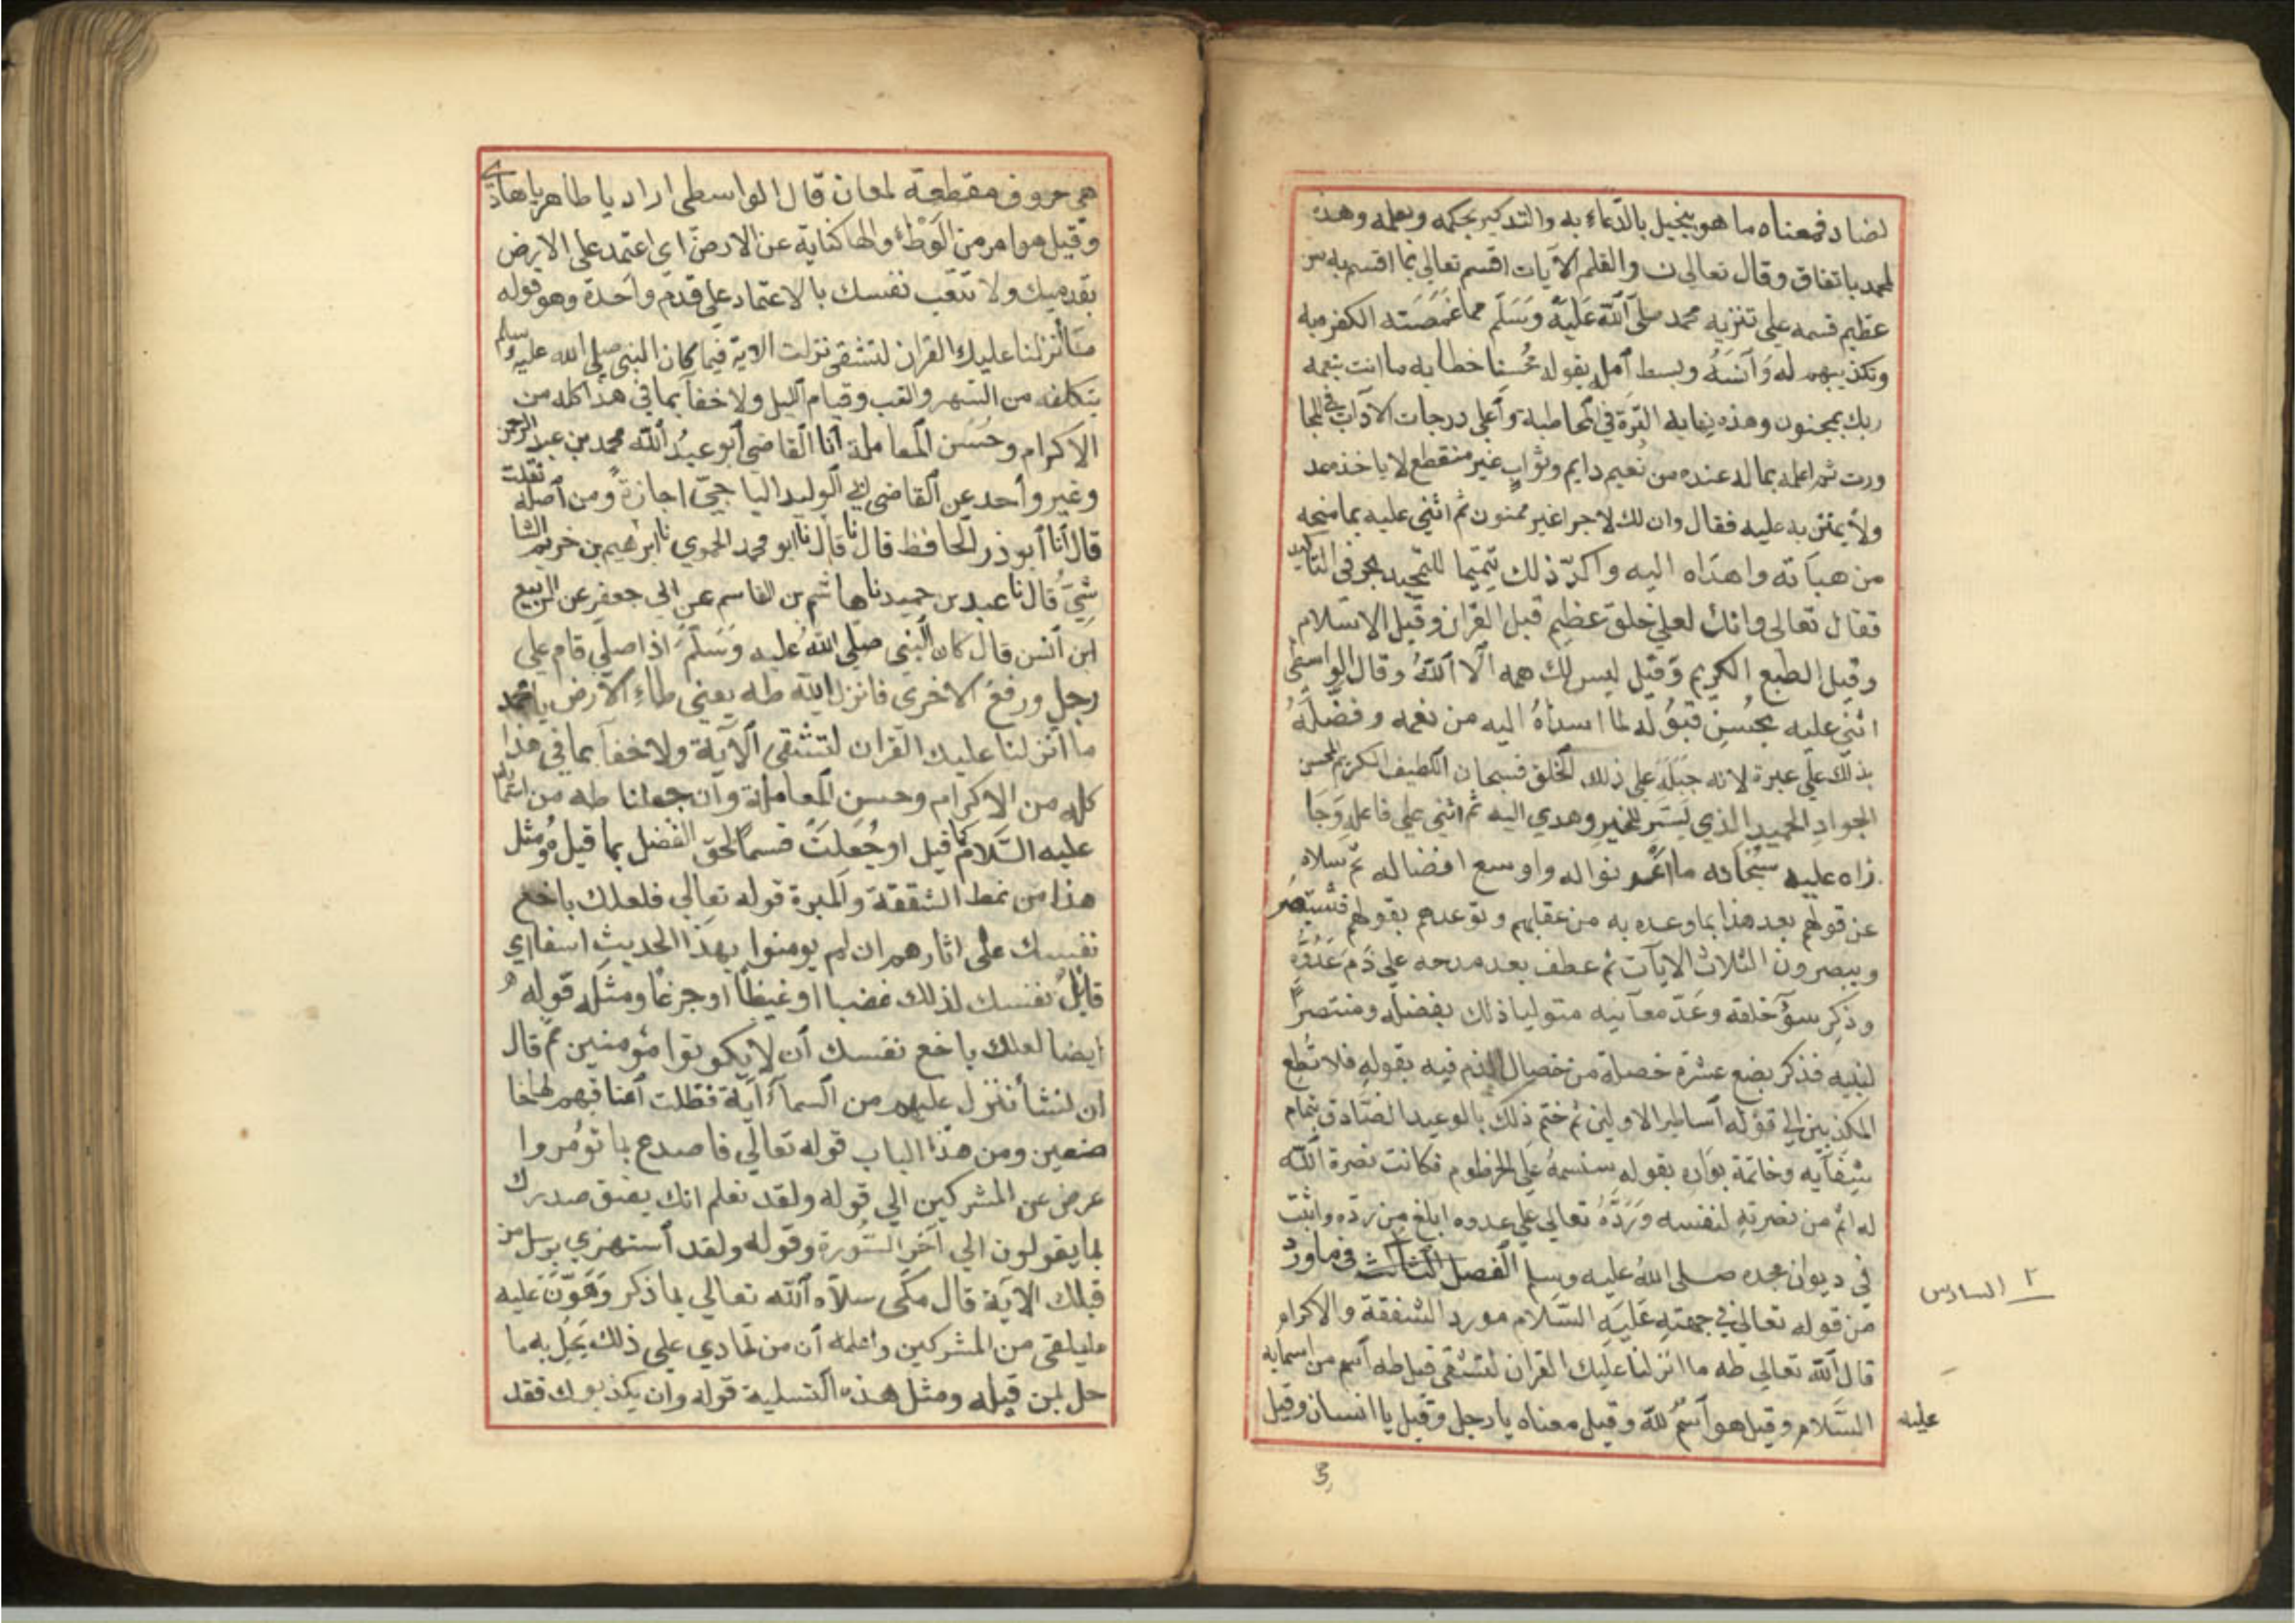 لضاد فمعناه ما هو ببخيل بالدعاء به والتذكير بحكمه وبعلمه وهذه
لمحمد باتفاق وقال تعالى ن والقلم الآيات اقسم تعالى بما اقسم به من
عظيم قسمه على تنزيه محمد صلى الله عليه وسلم مما غمصته الكفرة به
وتكذيبهم له وآنسه وبسط امله بقوله محسنا خطابه ما انت بنعمه
ربك بمجنون وهذه نهاية المبرة في المخاطبة واعلى درجات الآداب في المحا
ورت ثم اعلمه بما له عنده من نعيم دايم وثواب غير منقطع لا ياخذه عد
ولا يمتن به عليه فقال وان لك لاجرا غير ممنون ثم اثنى عليه بما منحه
من هباته واهداه اليه واكد ذلك تتميما للتمجيد بحرفي التاكيد
فقال تعالى وانك لعلى خلق عظيم قيل القران وقيل الاسلام
وقيل الطبع الكريم وقيل ليس لك همه الا الله وقال الواسطى
اثنى عليه بحسن قبوله لما اسداه اليه من نعمه وفضله
بذلك على غيره لانه جبله على ذلك الخلق فسبحان اللطيف الكريم المحسن
الجواد الحميد الذي يسر للخير وهدي اليه ثم اثنى على فاعله وجا
زاه عليه سبحانه ما اغمر نواله واوسع افضاله ثم سلاه
عن قولهم بعد هذا بما وعده به من عقابهم وتوعدهم بقولهم فستبصر
ويبصرون الثلاث الايات ثم عطف بعد مدحه على ذم عدوه
وذكر سؤ خلقه وعد معآئبه متوليا ذلك بفضله ومنتصرا
لنبيه فذكر بضع عشرة خصلة من خصال الذم فيه بقوله فلا تطع
المكذبين الى قوله اساطير الاولين ثم ختم ذلك بالوعيد الصادق بتمام
شقآيه وخاتمة بواره بقوله سنسمه على الخرطوم فكانت نصرة الله
له اتم من نصرته لنفسه ورده تعالى على عدوه ابلغ من رده واثبت
في ديوان مجده صلى الله عليه وسلم الفصل الثالث في ما ورد
٢ السادس
من قوله تعالى في جهته عليه السلام مورد الشفقة والاكرام
قال الله تعالى طه ما انزلنا عليك القران لتشقى قيل طه اسم من اسمايه
عليه السلام وقيل هو اسم لله وقيل معناه يا رجل وقيل يا انسان وقيل
هي حروف مقطعة لمعان قال الواسطى اراد يا طاهر يا هادي
وقيل هو امر من الوطء والها كناية عن الارض اى اعتمد على الارض
بقدميك ولا تتعب نفسك بالاعتماد على قدم واحدة وهو قوله
ما أنزلنا عليك القران لتشقى نزلت الاية فيما كان النبي صلى الله عليه وسلم
يتكلفه من السهر والتعب وقيام الليل ولا خفآ بما في هذا كله من
الاكرام وحسن المعاملة انا القاضي ابو عبد الله محمد بن عبد الرحمن
وغير واحد عن القاضي ابي الوليد الباجي اجازة ومن اصله نقلت
قال أنا أبو ذر الحافظ قال نا قال نا ابو محمد الحموي نا ابرهيم بن خزيم الشا
شي قال نا عبد بن حميد نا هاشم بن القاسم عن ابي جعفر عن الربيع
ابن أنس قال كان النبي صلى الله عليه وسلم اذا صلى قام على
رجل ورفع الاخري فانزل الله طه يعني طاء الارض يا محمد
ما أنزلنا عليك القران لتشقى الآية ولا خفآ بما في هذا
كله من الاكرام وحسن المعاملة وان جعلنا طه من اسمائه
عليه السلام كما قيل او جعلت قسما لحق الفضل بما قبله ومثل
هذا من نمط الشفقة والمبرة قوله تعالي فلعلك باخع
نفسك على اثارهم ان لم يومنوا بهذا الحديث اسفا اي
قاتل نفسك لذلك غضبا او غيظا او جزعا ومثله قوله
ايضا لعلك باخع نفسك أن لا يكونوا مؤمنين ثم قال
ان نشأ ننزل عليهم من السمآء آية فظلت أعناقهم لها خا
ضعين ومن هذا الباب قوله تعالى فاصدع با تؤمر وا
عرض عن المشركين الي قوله ولقد نعلم انك يضيق صدرك
بما يقولون الي آخر السورة وقوله ولقد استهزي برسل من
قبلك الآية قال مكى سلاه الله تعالي بما ذكر وهون عليه
ما يلقى من المشركين واعلمه أن من تمادي على ذلك يحل به ما
حل بمن قبله ومثل هذه التسلية قوله وان يكذبوك فقد